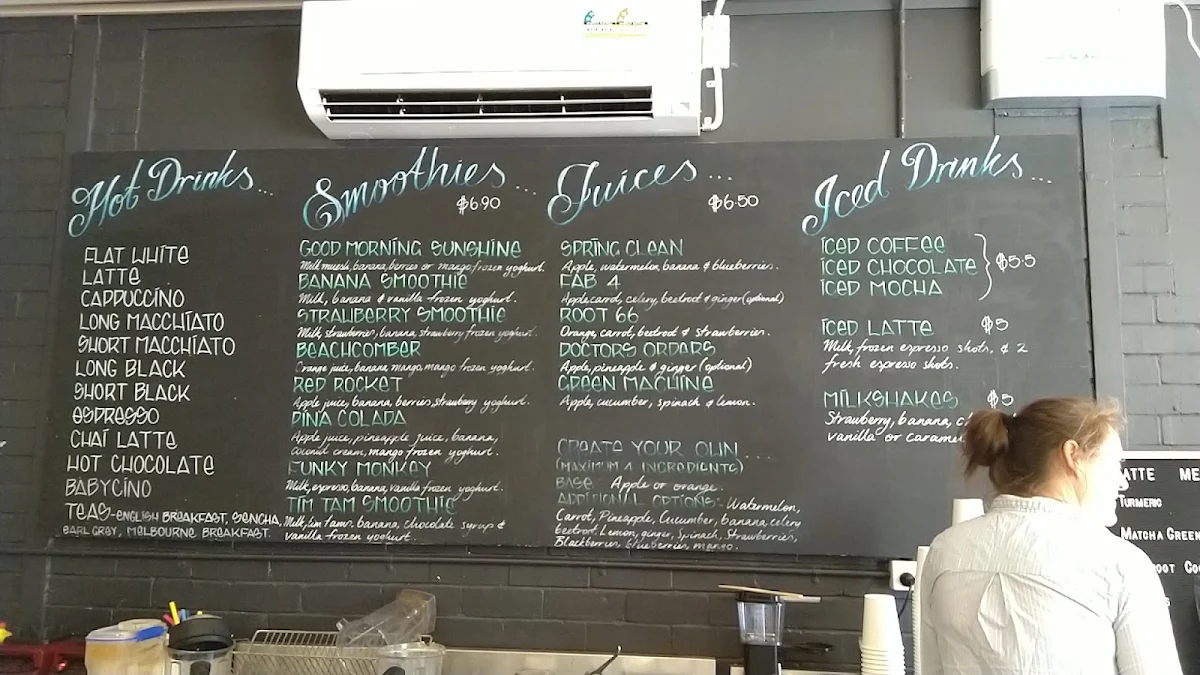 Hot Drinks...
FLAT WHITE
LATTE
CAPPUCCINO
LONG MACCHIATO
SHORT MACCHIATO
LONG BLACK
SHORT BLACK
ESPRESSO
CHAI LATTE
HOT CHOCOLATE
BABYCINO
TEAS-ENGLISH BREAKFAST, SENCHA,
EARL GREY, MELBOURNE BREAKFAST.
Smoothies...
$6.90
GOOD MORNING SUNSHINE
Milk muesli, banana, berries or mango, frozen yoghurt.
BANANA SMOOTHIE
Milk, banana & vanilla frozen yoghurt.
STRAWBERRY SMOOTHIE
Milk, strawberries, banana, strawberry frozen yoghurt.
BEACHCOMBER
Orange juice, banana, mango, mango frozen yoghurt.
RED ROCKET
Apple juice, banana, berries, strawberry yoghurt.
PINA COLADA
Apple juice, pineapple juice, banana,
coconut cream, mango frozen yoghurt.
FUNKY MONKEY
Milk, espresso, banana, vanilla frozen yoghurt.
TIM TAM SMOOTHIE
Milk, tim tams, banana, chocolate syrup &
vanilla frozen yoghurt.
Juices...
$6.50
SPRING CLEAN
Apple, watermelon, banana & blueberries.
FAB 4
Apple carrot, celery, beetroot & ginger (optional)
ROOT 66
Orange, carrot, beetroot & strawberries.
DOCTORS ORDARS
Apple, pineapple & ginger (optional)
GREEN MACHINE
Apple, cucumber, spinach & lemon.
CREATE YOUR OWN ....
(MAXIMUM 4 INGREDIENTS)
BASE Apple or orange.
ADDITIONAL OPTIONS- Watermelon,
Carrot, Pineapple, Cucumber, banana, celery
beetroot, Lemon, ginger, spinach, Strawberries,
Blackberries, blueberries, mango.
Iced Drinks...
ICED COFFEE
ICED CHOCOLATE
ICED MOCHA
$5.5
ICED LATTE $5
Milk, frozen espresso shots, & 2
fresh espresso shots.
MILKSHAKES $5
Strawberry, banana,
vanilla or caramel
ATTE ME
TURMERIC
MATCHA GREEN
ROOT